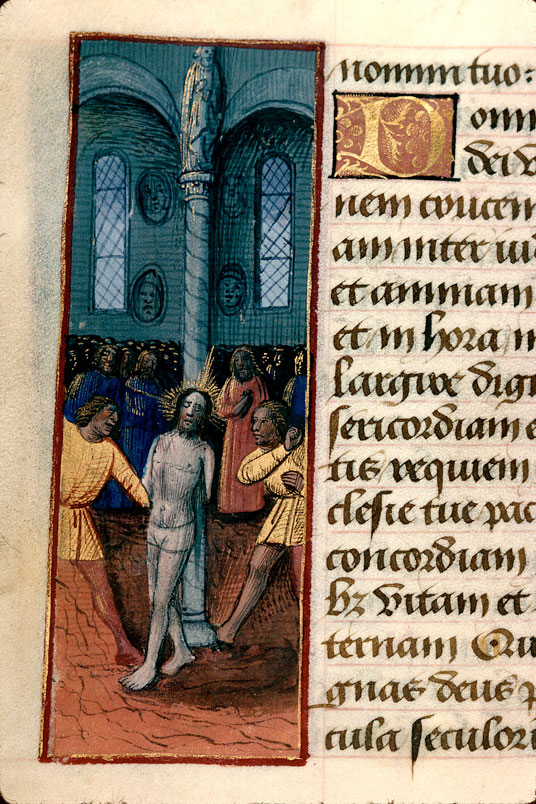 nomini tuo:
Domi
dei v
nem crucem
am inter iud
et animam
et in hora m
largire dig
sericordiam e
tis requiem
clesie tue pac
concordiam
bz vitam et
ternam Qu
gnas deus p
cula seculor